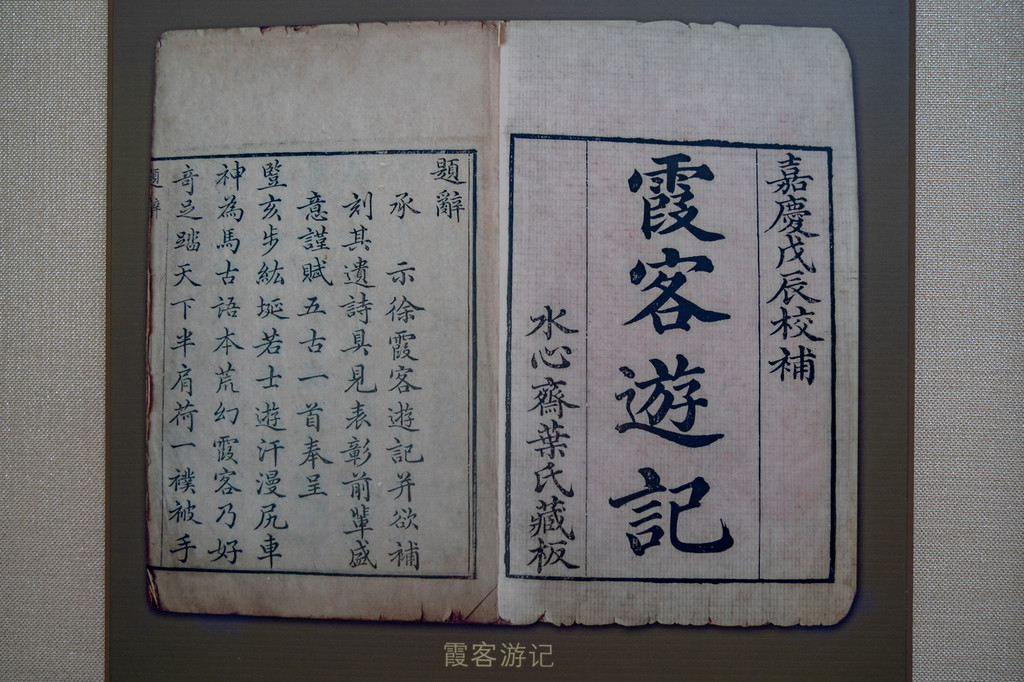 嘉慶戊辰校補
霞客遊記
水心齋葉氏藏板
題辭
承 示徐霞客遊記并欲補
刻其遺詩具見表彰前輩盛
意謹賦五古一首奉呈
豎亥步紘埏若士遊汗漫尻車
神為馬古語本荒幻霞客乃好
奇足踏天下半肩荷一襆被手
題辭
霞客游记